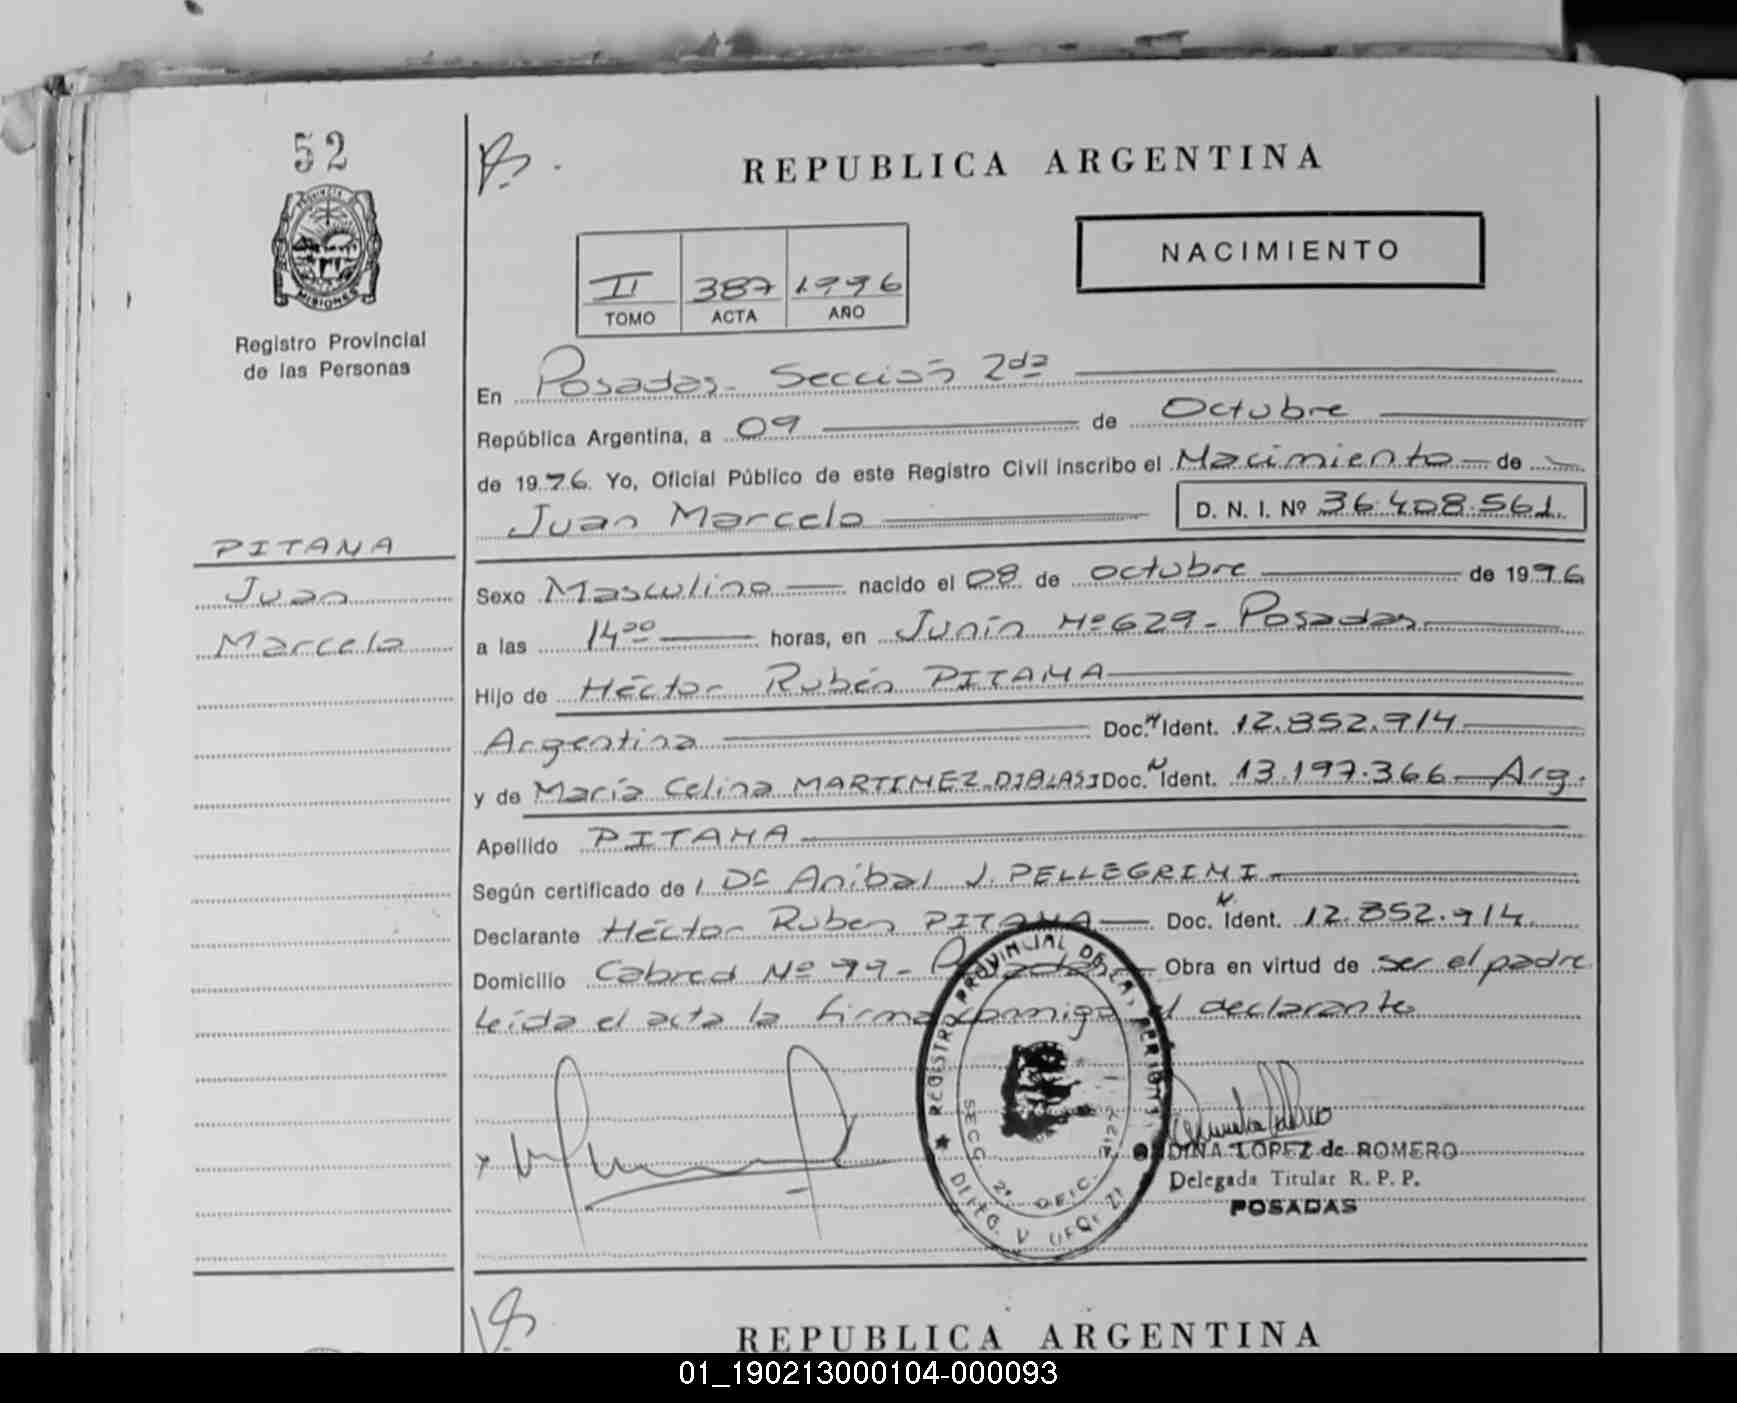 52
REPUBLICA ARGENTINA
NACIMIENTO
II 387 1996
TOMO ACTA AÑO
MISIONES
Registro Provincial
de las Personas
En Posadas - Sección 2da
República Argentina, a 09 de Octubre
de 1996. Yo, Oficial Público de este Registro Civil inscribo el Nacimiento de
Juan Marcelo D. N. I. Nº 36.408.561.
PITANA
Juan
Marcelo
Sexo Masculino nacido el 08 de octubre de 1996
a las 14 00 horas, en Junín Nº 629 - Posadas
Hijo de Héctor Rubén PITANA
Argentina Doc. N. Ident. 12.852.914
y de María Celina MARTINEZ DIBLASI Doc. N Ident. 13.197.366 Arg.
Apellido PITANA
Según certificado de l Dr Aníbal J. PELLEGRINI
Declarante Héctor Ruben PITANA Doc. N. Ident. 12.852.914
Domicilio Cabred Nº 99 - Posadas Obra en virtud de ser el padre
leída el acta la firma conmigo el declarante
REGISTRO PROVINCIAL DE LAS PERSONAS
SECC. 2ª OFIC.
DINA LOPEZ de ROMERO
Delegada Titular R. P. P.
POSADAS
REPUBLICA ARGENTINA
01_190213000104-000093